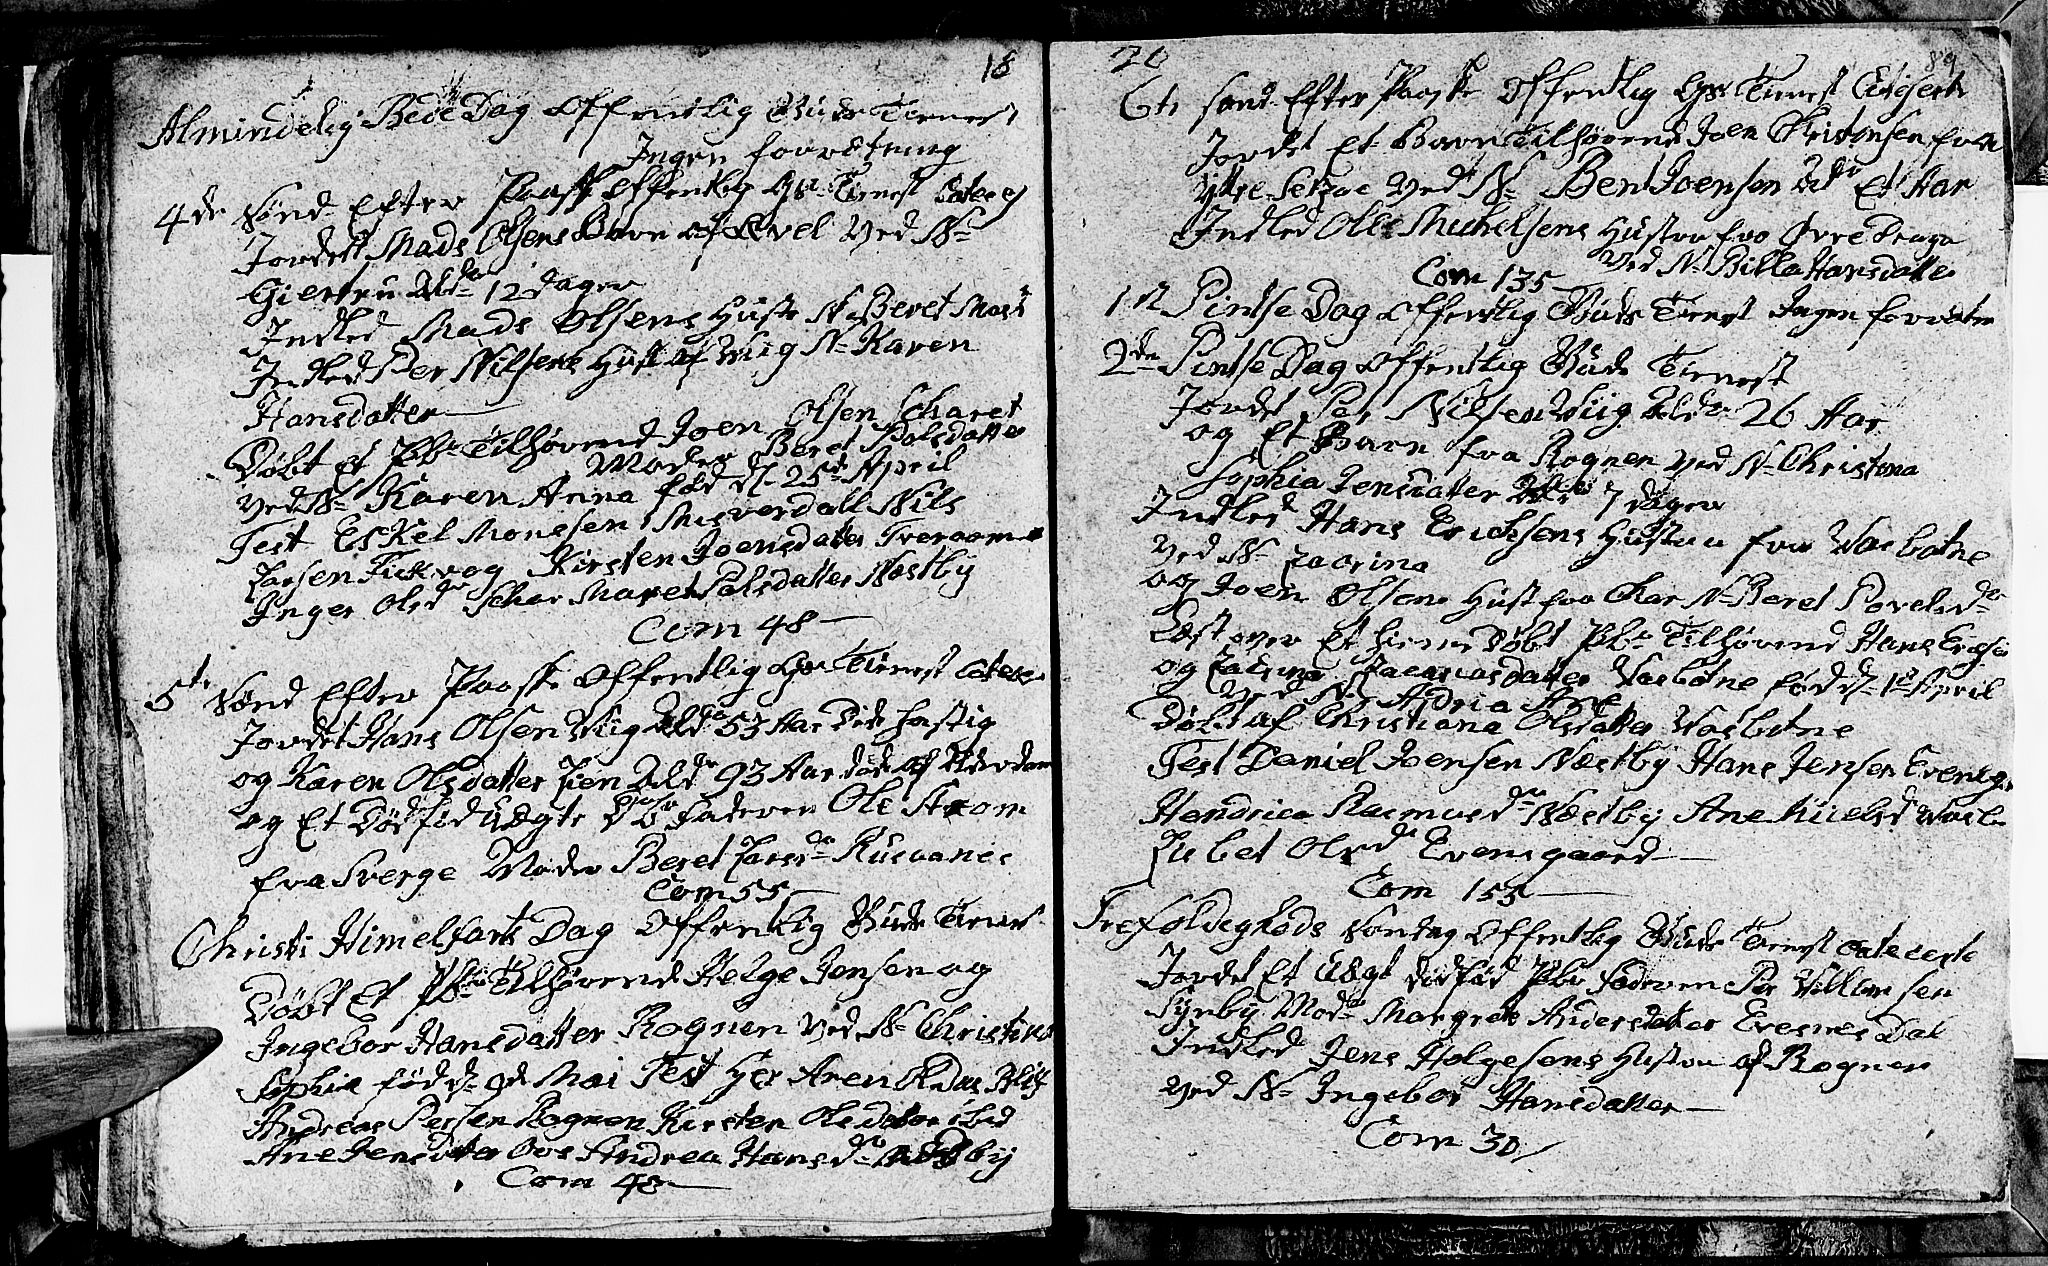 18
Almindelig Bede Dag Offentlig Guds Tienest
Ingen foorretning
4de Sønd Efter Paaske Offentlig Gs Tienest
Jordett Mads Olsens Barn af Evel Ved N
Giertru Alde 12 dager
Indled Mads Olsens Huste N Beret Mosd
Indled Per Nilsens Hust af Wiig N Karen
Hansdatter
Døbt Et Pb Tilhørend Joen Olsen Scharet
Moder Beret Palsdatter
ved N Karen Anna fød d 25de April
Test Eskel Monesen Misverdall Nils
Larsen Fickvog Kirsten Joensdatter Tveraamo
Inger Olsd Schar Maret Palsdatter Næstby
Com 48
5te Sønd Efter Paaske Offentlig Gs Tienest
Jordet Hans Olsen Wiig Alde 53 Aar Døde hastig
og Karen Olsdatter Lien Alde 93 Aar døde af Alderdom
og Et Dødfød Uægte Faderen Ole Strom
fra Sverge Moder Beret Larsd Rusvanes
Com 55
Christi Himelfarts Dag Offentlig Guds Tienest
Døbt Et Pb Tilhørend Helge Jensen og
Ingebor Hansdatter Rognen ved N Christina
Sophia fød d 9d Mai Test Her Aren
Andreas Persen Rognen Kirsten Olsdatter ibid
Ane Jensdatter Andrea Hansd
Com 48
20
89
6te Sønd Efter Paaske Offentlig Gs Tienest
Jordet Et Barn Tilhørend Joen Christensen fra
Ytre Setzoe Ved N Bent Joensen Alde Et Aar
Indled Ole Michelsens Hustru fra Øvre
ved N Billa Hansdatter
Com 135
1st Pintse Dag Offentlig Guds Tienest Ingen forretn
2den Pintse Dag Offentlig Guds Tienest
Jordet Per Nilsen Wiig Alde 26 Aar
og Et Barn fra Rognen ved N Christina
Sophia Jensdatter Alde 7 dager
Indled Hans Erichsens Hustru fra Wasbotne
Ved N
og Joen Olsens Hust fra Char N Beret Povelsd
Læst over Et hiemedøbt Pb Tilhørend Hans Erichs
og Zacariasdatter Wasbotne fød d 1st April
Ved N
Døbt af Christiana Olsdatter Wasbotne
Test Daniel Joensen Næstby Hans Jensen Evensg
Hendrica Rasmusd Næstby Ane Wasb
Lisbet Olsd Evensgaard
Com 155
Trefoldigheds Søndag Offentlig Guds Tienest
Jordet Et Uægt dødfød Pb Faderen Per Willumsen
Moder Margrete Andersdatter Evesnes Dal
Indled Jens Helgesens Hustru af Rognen
ved N Ingebor Hansdatter
Com 30